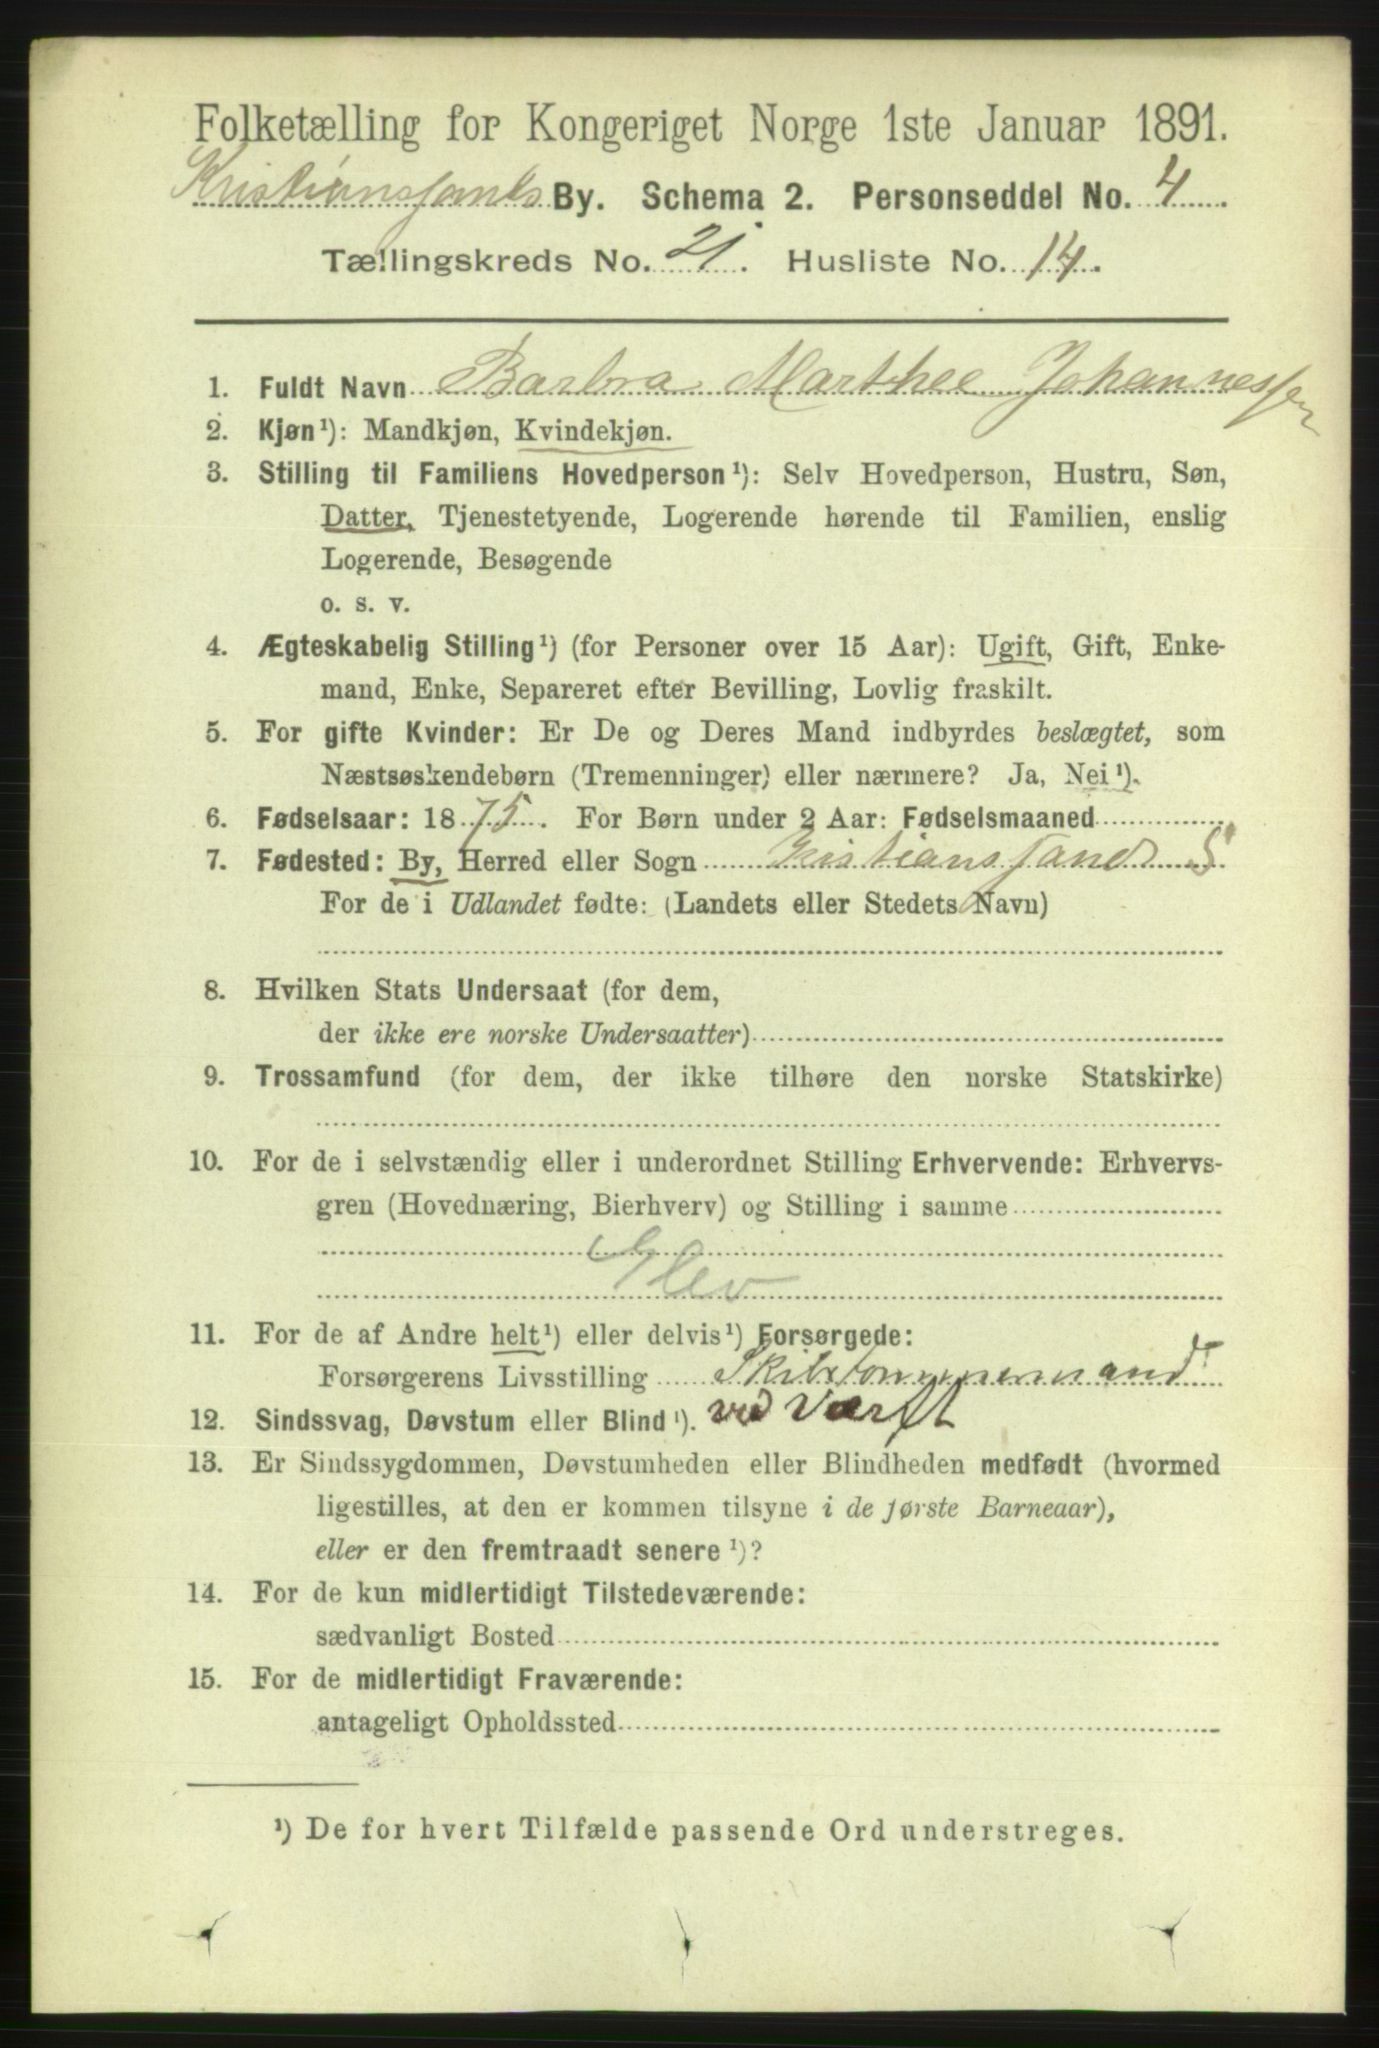 Folketælling for Kongeriget Norge 1ste Januar 1891.
Kristianssands By. Schema 2. Personseddel No. 4
Tællingskreds No. 21. Husliste No. 14.
1. Fuldt Navn Barbra Marthee Johannessen
2. Kjøn¹): Mandkjøn, Kvindekjøn.
3. Stilling til Familiens Hovedperson¹): Selv Hovedperson, Hustru, Søn,
Datter, Tjenestetyende, Logerende hørende til Familien, enslig
Logerende, Besøgende
o. s. v.
4. Ægteskabelig Stilling¹) (for Personer over 15 Aar): Ugift, Gift, Enke-
mand, Enke, Separeret efter Bevilling, Lovlig fraskilt.
5. For gifte Kvinder: Er De og Deres Mand indbyrdes beslægtet, som
Næstsøskendebørn (Tremenninger) eller nærmere? Ja, Nei¹).
6. Fødselsaar: 1875. For Børn under 2 Aar: Fødselsmaaned
7. Fødested: By, Herred eller Sogn Kristianssand S
For de i Udlandet fødte: (Landets eller Stedets Navn)
8. Hvilken Stats Undersaat (for dem,
der ikke ere norske Undersaatter)
9. Trossamfund (for dem, der ikke tilhøre den norske Statskirke)
10. For de i selvstændig eller i underordnet Stilling Erhvervende: Erhvervs-
gren (Hovednæring, Bierhverv) og Stilling i samme
Elev
11. For de af Andre helt¹) eller delvis¹) Forsørgede:
Forsørgerens Livsstilling Skibstømmermand
12. Sindssvag, Døvstum eller Blind¹). ved Værft
13. Er Sindssygdommen, Døvstumheden eller Blindheden medfødt (hvormed
ligestilles, at den er kommen tilsyne i de første Barneaar),
eller er den fremtraadt senere¹)?
14. For de kun midlertidigt Tilstedeværende:
sædvanligt Bosted
15. For de midlertidigt Fraværende:
antageligt Opholdssted
¹) De for hvert Tilfælde passende Ord understreges.